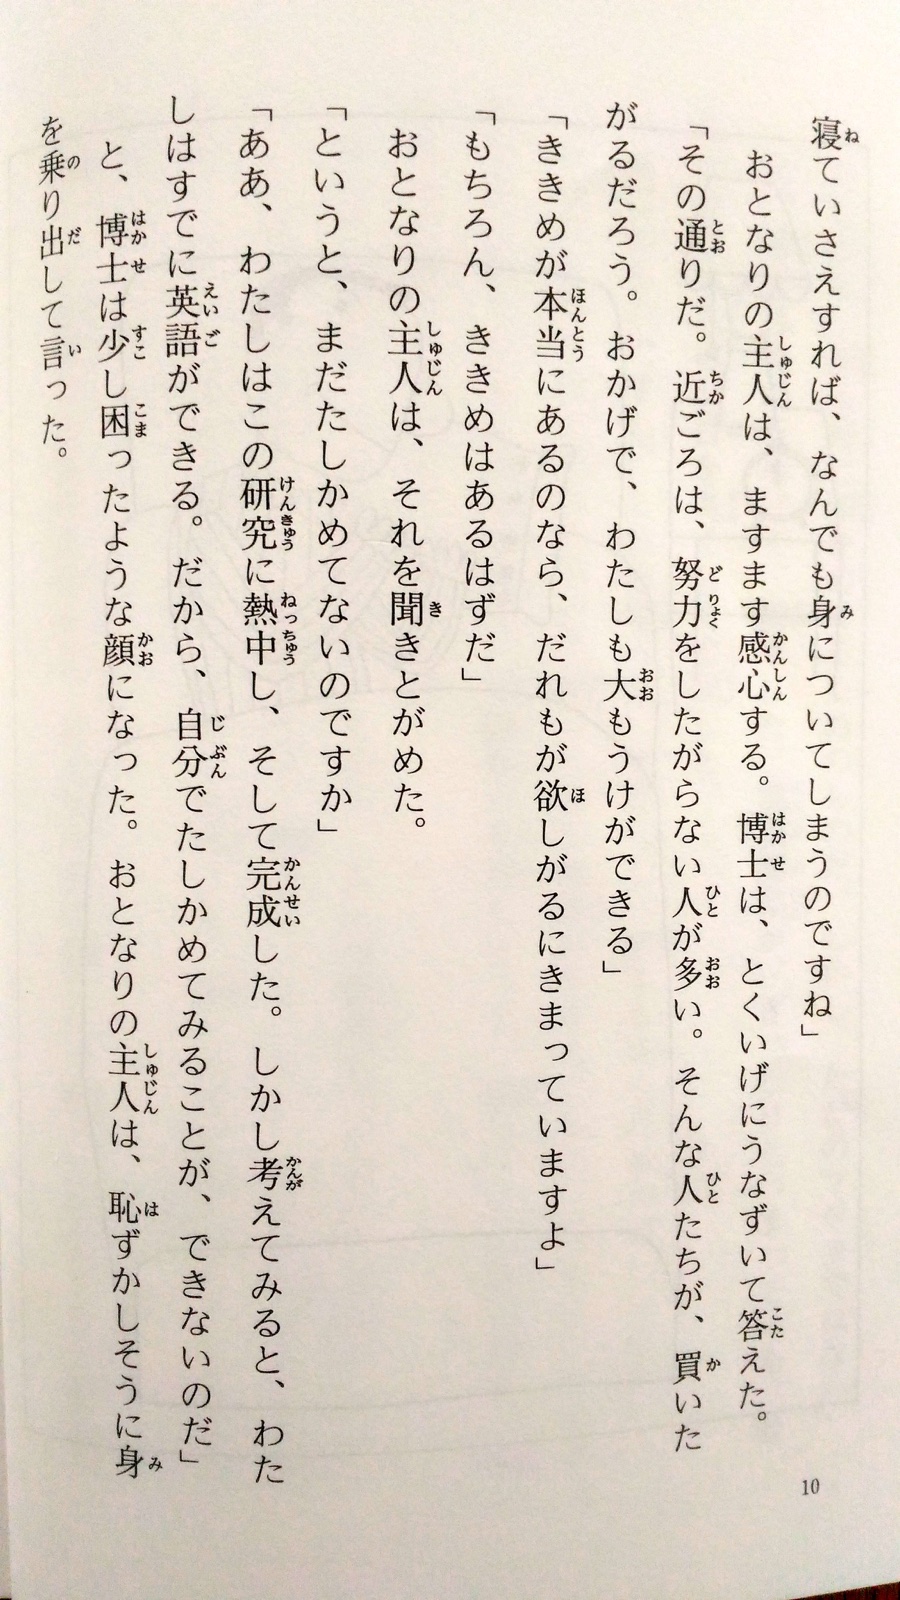 寝ていさえすれば、なんでも身についてしまうのですね」
おとなりの主人は、ますます感心する。博士は、とくいげにうなずいて答えた。
「その通りだ。近ごろは、努力をしたがらない人が多い。そんな人たちが、買いた
がるだろう。おかげで、わたしも大もうけができる」
「ききめが本当にあるのなら、だれもが欲しがるにきまっていますよ」
「もちろん、ききめはあるはずだ」
おとなりの主人は、それを聞きとがめた。
「というと、まだたしかめてないのですか」
「ああ、わたしはこの研究に熱中し、そして完成した。しかし考えてみると、わた
しはすでに英語ができる。だから、自分でたしかめてみることが、できないのだ」
と、博士は少し困ったような顔になった。おとなりの主人は、恥ずかしそうに身
を乗り出して言った。
10